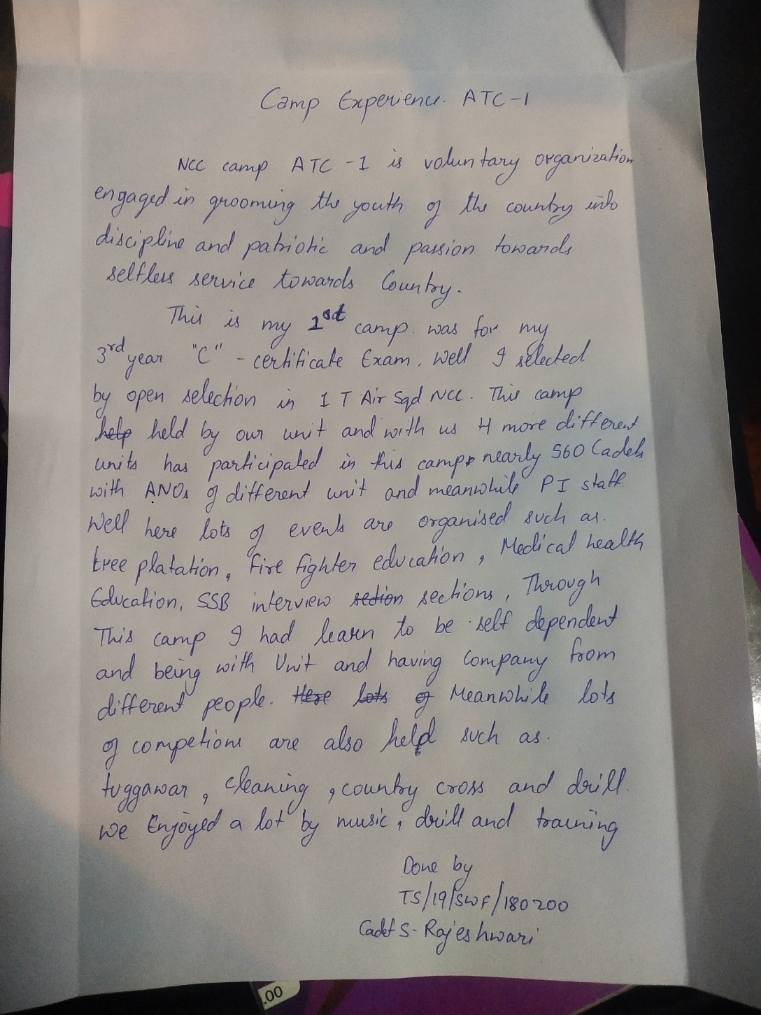 Camp Experience. ATC-1
NCC camp ATC-1 is voluntary organization
engaged in grooming the youth of the country into
discipline and patriotic and passion towards
selfless service towards Country.
This is my 1st camp. was for my
3rd year "C" - certificate Exam. Well I selected
by open selection in 1 T Air Sqd NCC. This camp
help held by our unit and with us 4 more different
units has participated in this camp nearly 560 Cadets
with ANOs of different unit and meanwhile PI staff.
Well here lots of events are organised such as.
tree platation, Fire fighter education, Medical health
Education, SSB interview section sections, Through
This camp I had learn to be self dependent
and being with Unit and having Company from
different people. Here lots of Meanwhile lots
of competions are also help such as.
tuggawar, cleaning, country cross and drill.
we Enjoyed a lot by music, drill and training
Done by
TS/19/SWF/180200
Cadet S. Rajeshwari
.00